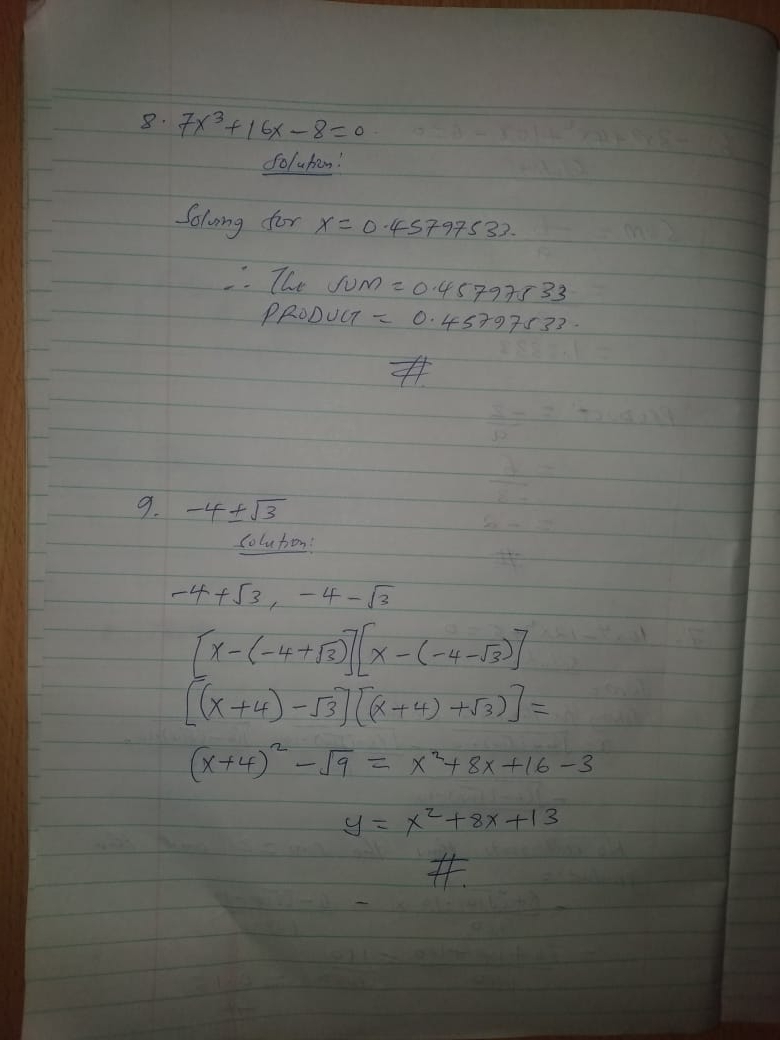 8. 7x³+16x-8=0.
Solution:
Solving for x = 0.45797533.
∴ The SUM = 0.45797533
PRODUCT = 0.45797533.
#
9. -4±√3
Solution:
-4+√3, -4-√3
[x-(-4+√3)][x-(-4-√3)]
[(x+4)-√3][(x+4)+√3)]=
(x+4)²-√9 = x²+8x+16-3
y = x²+8x+13
#.